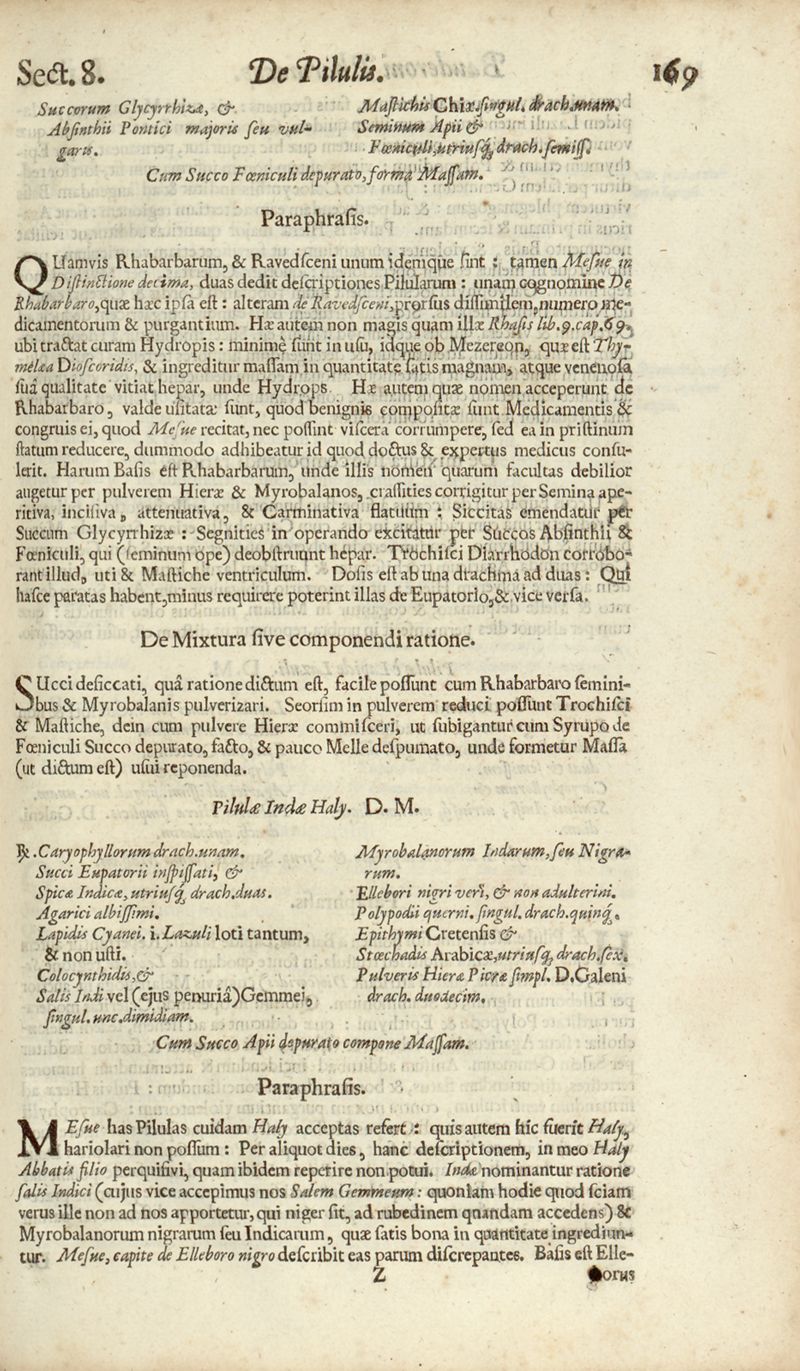 Sect. 8. De Pilulis. 169
Succorum Glycyrrhizæ, &
Absinthii Pontici majoris seu vul-
garis.
Mastichis Chiæ singul. drach. unam.
Seminum Apii &
Fœniculi, utriusq; drach. semiss.
Cum Succo Fœniculi depurato, forma Massam.
Paraphrasis.
QUamvis Rhabarbarum, & Ravedsceni unum idemque sint : tamen Mesue in
Distinctione decima, duas dedit descriptiones Pilularum : unam cognomine De
Rhabarbaro, quæ hæc ipsa est : alteram de Ravedsceni, prorsus dissimilem, numero me-
dicamentorum & purgantium. Hæ autem non magis quam illæ Rhasis lib. 9. cap. 69.
ubi tractat curam Hydropis : minimè sunt in usu, idque ob Mezereon, quæ est Thy-
melæa Dioscoridis, & ingreditur massam in quantitate satis magnam, atque venenosa
suâ qualitate vitiat hepar, unde Hydrops. Hæ autem quæ nomen acceperunt de
Rhabarbaro, valde usitatæ sunt, quod benignis compositæ sunt Medicamentis &
congruis ei, quod Mesue recitat, nec possint viscera corrumpere, sed ea in pristinum
statum reducere, dummodo adhibeatur id quod doctus & expertus medicus consu-
lerit. Harum Basis est Rhabarbarum, unde illis nomen quarum facultas debilior
augetur per pulverem Hieræ & Myrobalanos, crassities corrigitur per Semina ape-
ritiva, incisiva, attenuativa, & Carminativa flatuum : Siccitas emendatur per
Succum Glycyrrhizæ : Segnities in operando excitatur per Succos Absinthii &
Fœniculi, qui (seminum ope) deobstruunt hepar. Trochisci Diarrhodon corrobo-
rant illud, uti & Mastiche ventriculum. Dosis est ab una drachma ad duas : Qui
hasce paratas habent, minus requirere poterint illas de Eupatorio, & vice versa.
De Mixtura sive componendi ratione.
SUcci desiccati, quâ ratione dictum est, facile possunt cum Rhabarbaro semini-
bus & Myrobalanis pulverizari. Seorsim in pulverem reduci possunt Trochisci
& Mastiche, dein cum pulvere Hieræ commisceri, ut subigantur cum Syrupo de
Fœniculi Succo depurato, facto, & pauco Melle despumato, unde formetur Massa
(ut dictum est) usui reponenda.
Pilulæ Indæ Haly. D. M.
℞. Caryophyllorum drach. unam.
Succi Eupatorii inspissati, &
Spicæ Indicæ, utriusq; drach. duas.
Agarici albissimi.
Lapidis Cyanei. i. Lazuli loti tantum,
& non usti.
Colocynthidis, &
Salis Indi vel (ejus penuriâ) Gemmei,
singul. unc. dimidiam.
Myrobalanorum Indarum, seu Nigra-
rum.
Ellebori nigri veri, & non adulterini.
Polypodii querni, singul. drach. quinq;
Epithymi Cretensis &
Stœchadis Arabicæ, utriusq; drach. sex.
Pulveris Hieræ Picræ simpl. D. Galeni
drach. duodecim.
Cum Succo Apii depurato compone Massam.
Paraphrasis.
MEsue has Pilulas cuidam Haly acceptas refert : quis autem hic fuerit Haly,
hariolari non possum : Per aliquot dies, hanc descriptionem, in meo Haly
Abbatis filio perquisivi, quam ibidem reperire non potui. Indæ nominantur ratione
salis Indici (cujus vice accepimus nos Salem Gemmeum : quoniam hodie quod sciam
verus ille non ad nos apportetur, qui niger sit, ad rubedinem quandam accedens) &
Myrobalanorum nigrarum seu Indicarum, quæ satis bona in quantitate ingrediun-
tur. Mesue, capite de Elleboro nigro describit eas parum discrepantes. Basis est Elle-
Z orus